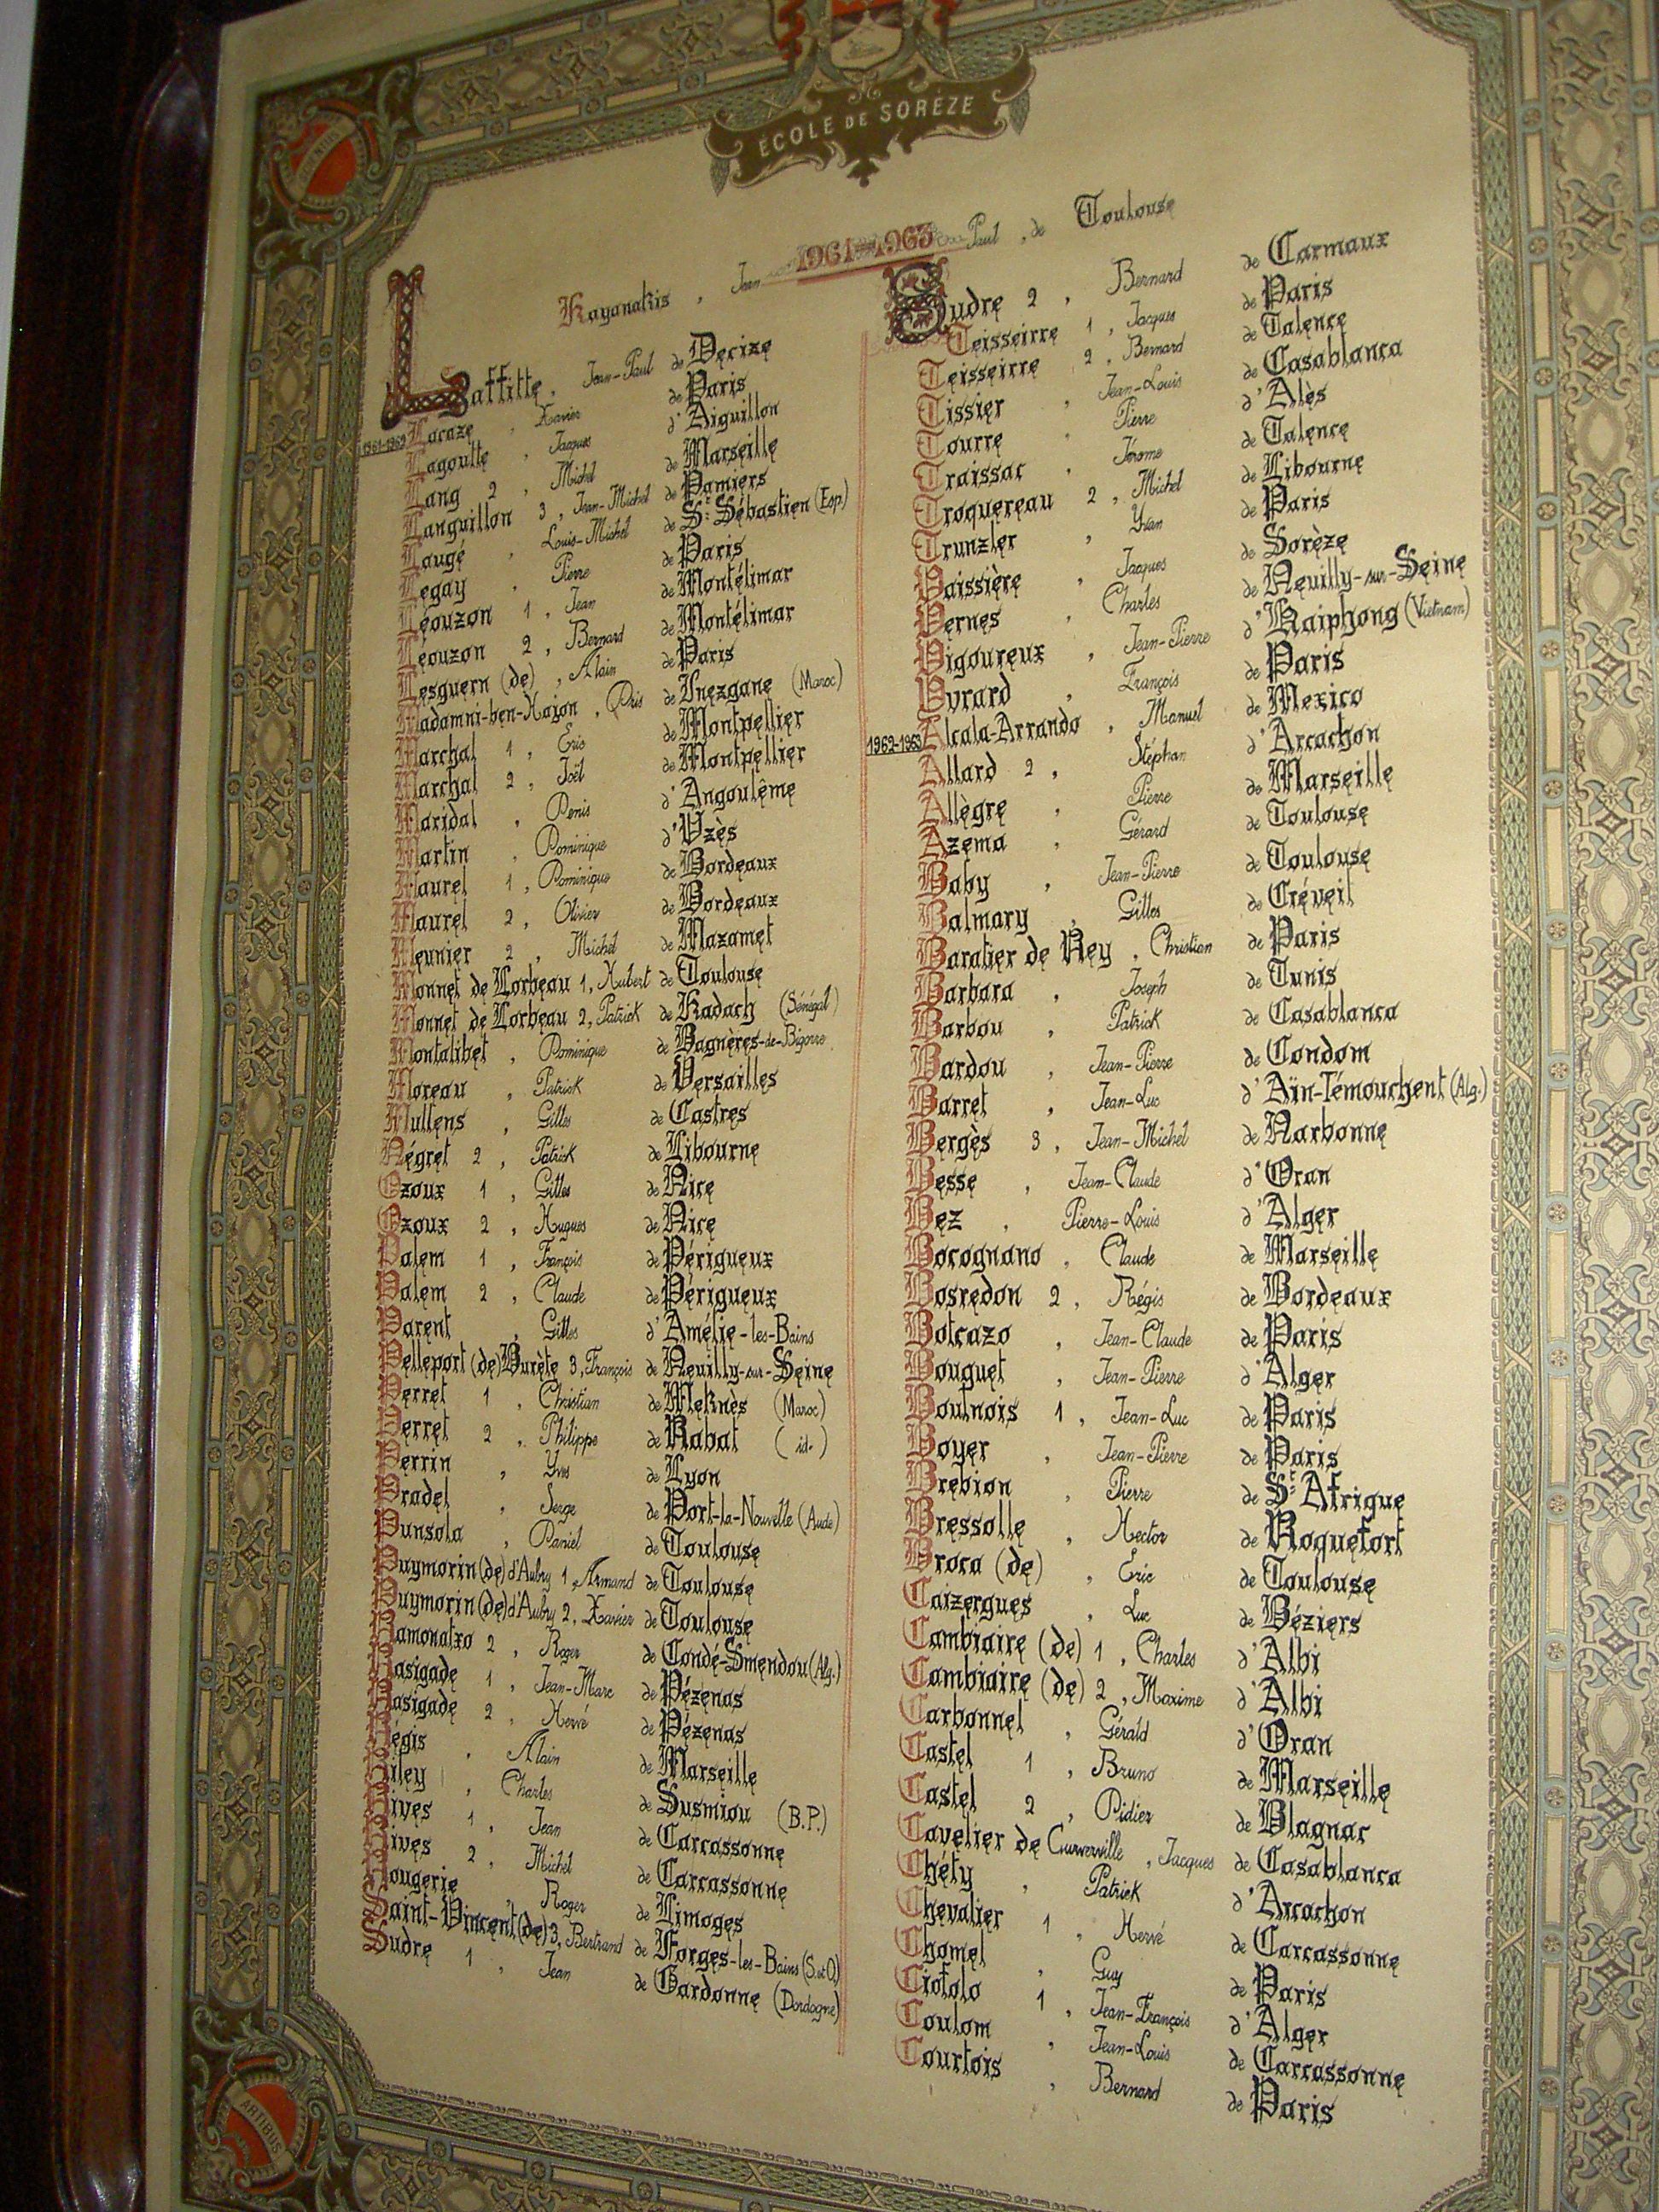 ÉCOLE DE SORÈZE
1961-1963
Kayanakis, Jean Paul, de Toulouse
Laffitte, Jean-Paul de Decize
1961-1962 Lacaze, Xavier de Paris
Lagoutte, Jacques d'Aiguillon
Lang 2, Michel de Marseille
Languillon 3, Jean-Michel de Pamiers
Laugé, Louis-Michel de St Sébastien (Esp.)
Legay, Pierre de Paris
Léouzon 1, Jean de Montélimar
Léouzon 2, Bernard de Montélimar
Lesguern (de), Alain de Paris
Madamni-ben-Hazon, Dris de Inezgane (Maroc)
Marchal 1, Eric de Montpellier
Marchal 2, Joël de Montpellier
Maridal, Denis d'Angoulême
Martin, Dominique d'Uzès
Maurel 1, Dominique de Bordeaux
Maurel 2, Olivier de Bordeaux
Meunier 2, Michel de Mazamet
Monnet de Lorbeau 1, Hubert de Toulouse
Monnet de Lorbeau 2, Patrick de Kadach (Sénégal)
Montalibet, Dominique de Bagnères-de-Bigorre
Moreau, Patrick de Versailles
Mullens, Gilles de Castres
Négret 2, Patrick de Libourne
Ozoux 1, Gilles de Nice
Ozoux 2, Hugues de Nice
Palem 1, François de Périgueux
Palem 2, Claude de Périgueux
Parent, Gilles d'Amélie-les-Bains
Pelleport (de) Burète 3, François de Neuilly-sur-Seine
Perret 1, Christian de Meknès (Maroc)
Perret 2, Philippe de Rabat (id.)
Perrin, Yves de Lyon
Pradel, Serge de Port-la-Nouvelle (Aude)
Punsola, Daniel de Toulouse
Puymorin (de) d'Aubry 1, Armand de Toulouse
Puymorin (de) d'Aubry 2, Xavier de Toulouse
Ramonatxo 2, Roger de Condé-Smendou (Alg.)
Rasigade 1, Jean-Marc de Pézenas
Rasigade 2, Hervé de Pézenas
Régis, Alain de Marseille
Riley, Charles de Susmiou (B.P.)
Rives 1, Jean de Carcassonne
Rives 2, Michel de Carcassonne
Rougerie, Roger de Limoges
Saint-Vincent (de) 3, Bertrand de Forges-les-Bains (S. et O.)
Sudre 1, Jean de Gardonne (Dordogne)
Sudre 2, Bernard de Carmaux
Teisseirre 1, Jacques de Paris
Teisseirre 2, Bernard de Talence
Tissier, Jean-Louis de Casablanca
Tourre, Pierre d'Alès
Traissac, Jérome de Talence
Troquereau 2, Michel de Libourne
Trunzler, Yvan de Paris
Vaissière, Jacques de Sorèze
Vernes, Charles de Neuilly-sur-Seine
Vigoureux, Jean-Pierre d'Haiphong (Vietnam)
Vvrard, François de Paris
1962-1963 Alcala-Arrando, Manuel de Mexico
Allard 2, Stéphan d'Arcachon
Allègre, Pierre de Marseille
Azema, Gérard de Toulouse
Baby, Jean-Pierre de Toulouse
Balmary, Gilles de Créveil
Baratier de Rey, Christian de Paris
Barbara, Joseph de Tunis
Barbou, Patrick de Casablanca
Bardou, Jean-Pierre de Condom
Barret, Jean-Luc d'Aïn-Témouchent (Alg.)
Bergès 3, Jean-Michel de Narbonne
Besse, Jean-Claude d'Oran
Bez, Pierre-Louis d'Alger
Bocognano, Claude de Marseille
Bosredon 2, Régis de Bordeaux
Botcazo, Jean-Claude de Paris
Bouguet, Jean-Pierre d'Alger
Boulnois 1, Jean-Luc de Paris
Boyer, Jean-Pierre de Paris
Brebion, Pierre de St Afrique
Bressolle, Hector de Roquefort
Broca (de), Eric de Toulouse
Caizergues, Luc de Béziers
Cambiaire (de) 1, Charles d'Albi
Cambiaire (de) 2, Maxime d'Albi
Carbonnel, Gérald d'Oran
Castel 1, Bruno de Marseille
Castel 2, Didier de Blagnac
Cavelier de Curverville, Jacques de Casablanca
Chéty, Patrick d'Arcachon
Chevalier 1, Hervé de Carcassonne
Chomel, Guy de Paris
Ciofolo 1, Jean-François d'Alger
Coulom, Jean-Louis de Carcassonne
Courtois, Bernard de Paris
ARTIBUS